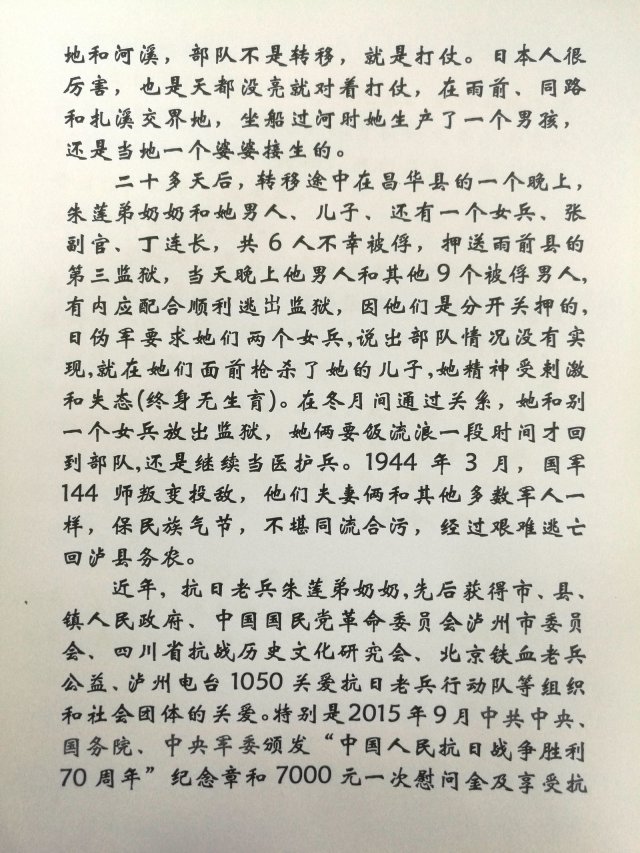 地和河溪，部队不是转移，就是打仗。日本人很
厉害，也是天都没亮就对着打仗，在雨前、同路
和扎溪交界地，坐船过河时她生产了一个男孩，
还是当地一个婆婆接生的。
二十多天后，转移途中在昌华县的一个晚上，
朱莲弟奶奶和她男人、儿子、还有一个女兵、张
副官、丁连长，共 6 人不幸被俘，押送雨前县的
第三监狱，当天晚上他男人和其他 9 个被俘男人，
有内应配合顺利逃出监狱，因他们是分开关押的，
日伪军要求她们两个女兵，说出部队情况没有实
现，就在她们面前枪杀了她的儿子，她精神受刺激
和失态(终身无生育)。在冬月间通过关系，她和别
一个女兵放出监狱，她俩要饭流浪一段时间才回
到部队，还是继续当医护兵。1944 年 3 月，国军
144 师叛变投敌，他们夫妻俩和其他多数军人一
样，保民族气节，不堪同流合污，经过艰难逃亡
回泸县务农。
近年，抗日老兵朱莲弟奶奶，先后获得市、县、
镇人民政府、中国国民党革命委员会泸州市委员
会、四川省抗战历史文化研究会、北京铁血老兵
公益、泸州电台 1050 关爱抗日老兵行动队等组织
和社会团体的关爱。特别是2015年9月中共中央、
国务院、中央军委颁发“中国人民抗日战争胜利
70 周年”纪念章和 7000 元一次慰问金及享受抗